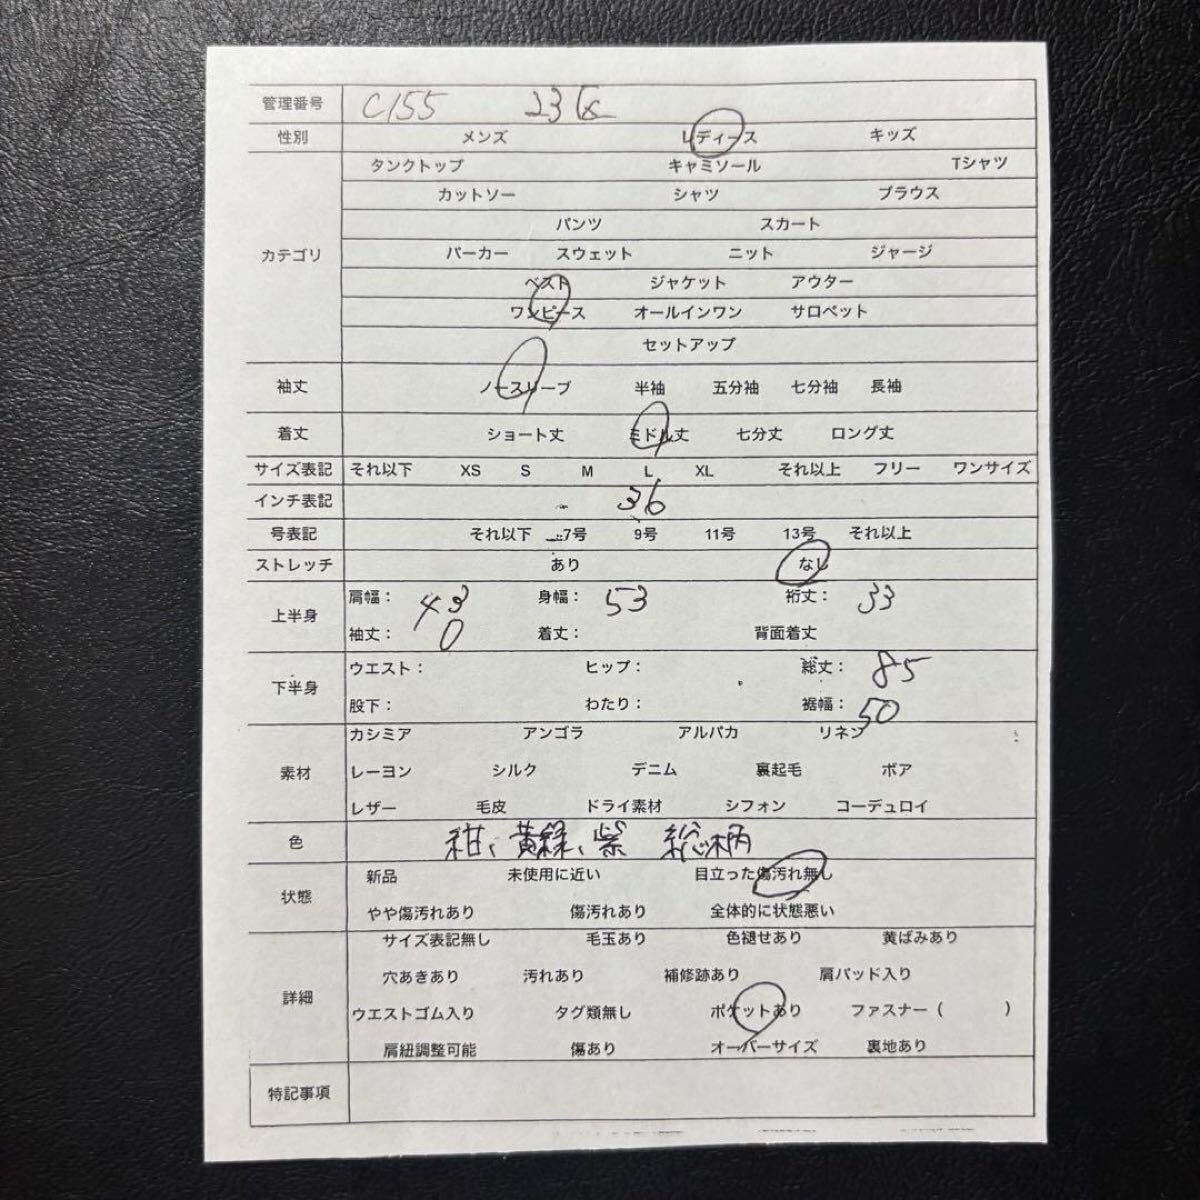 管理番号 C155
性別 メンズ レディース キッズ
タンクトップ キャミソール Tシャツ
カットソー シャツ ブラウス
パンツ スカート
カテゴリ パーカー スウェット ニット ジャージ
ベスト ジャケット アウター
ワンピース オールインワン サロペット
セットアップ
袖丈 ノースリーブ 半袖 五分袖 七分袖 長袖
着丈 ショート丈 ミドル丈 七分丈 ロング丈
サイズ表記 それ以下 XS S M L XL それ以上 フリー ワンサイズ
インチ表記 36
号表記 それ以下 7号 9号 11号 13号 それ以上
ストレッチ あり なし
上半身 肩幅： 43 身幅： 53 裄丈： 33
袖丈： 0 着丈： 背面着丈
下半身 ウエスト： ヒップ： 総丈： 85
股下： わたり： 裾幅： 50
カシミア アンゴラ アルパカ リネン
素材 レーヨン シルク デニム 裏起毛 ボア
レザー 毛皮 ドライ素材 シフォン コーデュロイ
色 紺、黄緑、紫 総柄
状態 新品 未使用に近い 目立った傷汚れ無し
やや傷汚れあり 傷汚れあり 全体的に状態悪い
サイズ表記無し 毛玉あり 色褪せあり 黄ばみあり
穴あきあり 汚れあり 補修跡あり 肩パッド入り
詳細 ウエストゴム入り タグ類無し ポケットあり ファスナー（ ）
肩紐調整可能 傷あり オーバーサイズ 裏地あり
特記事項